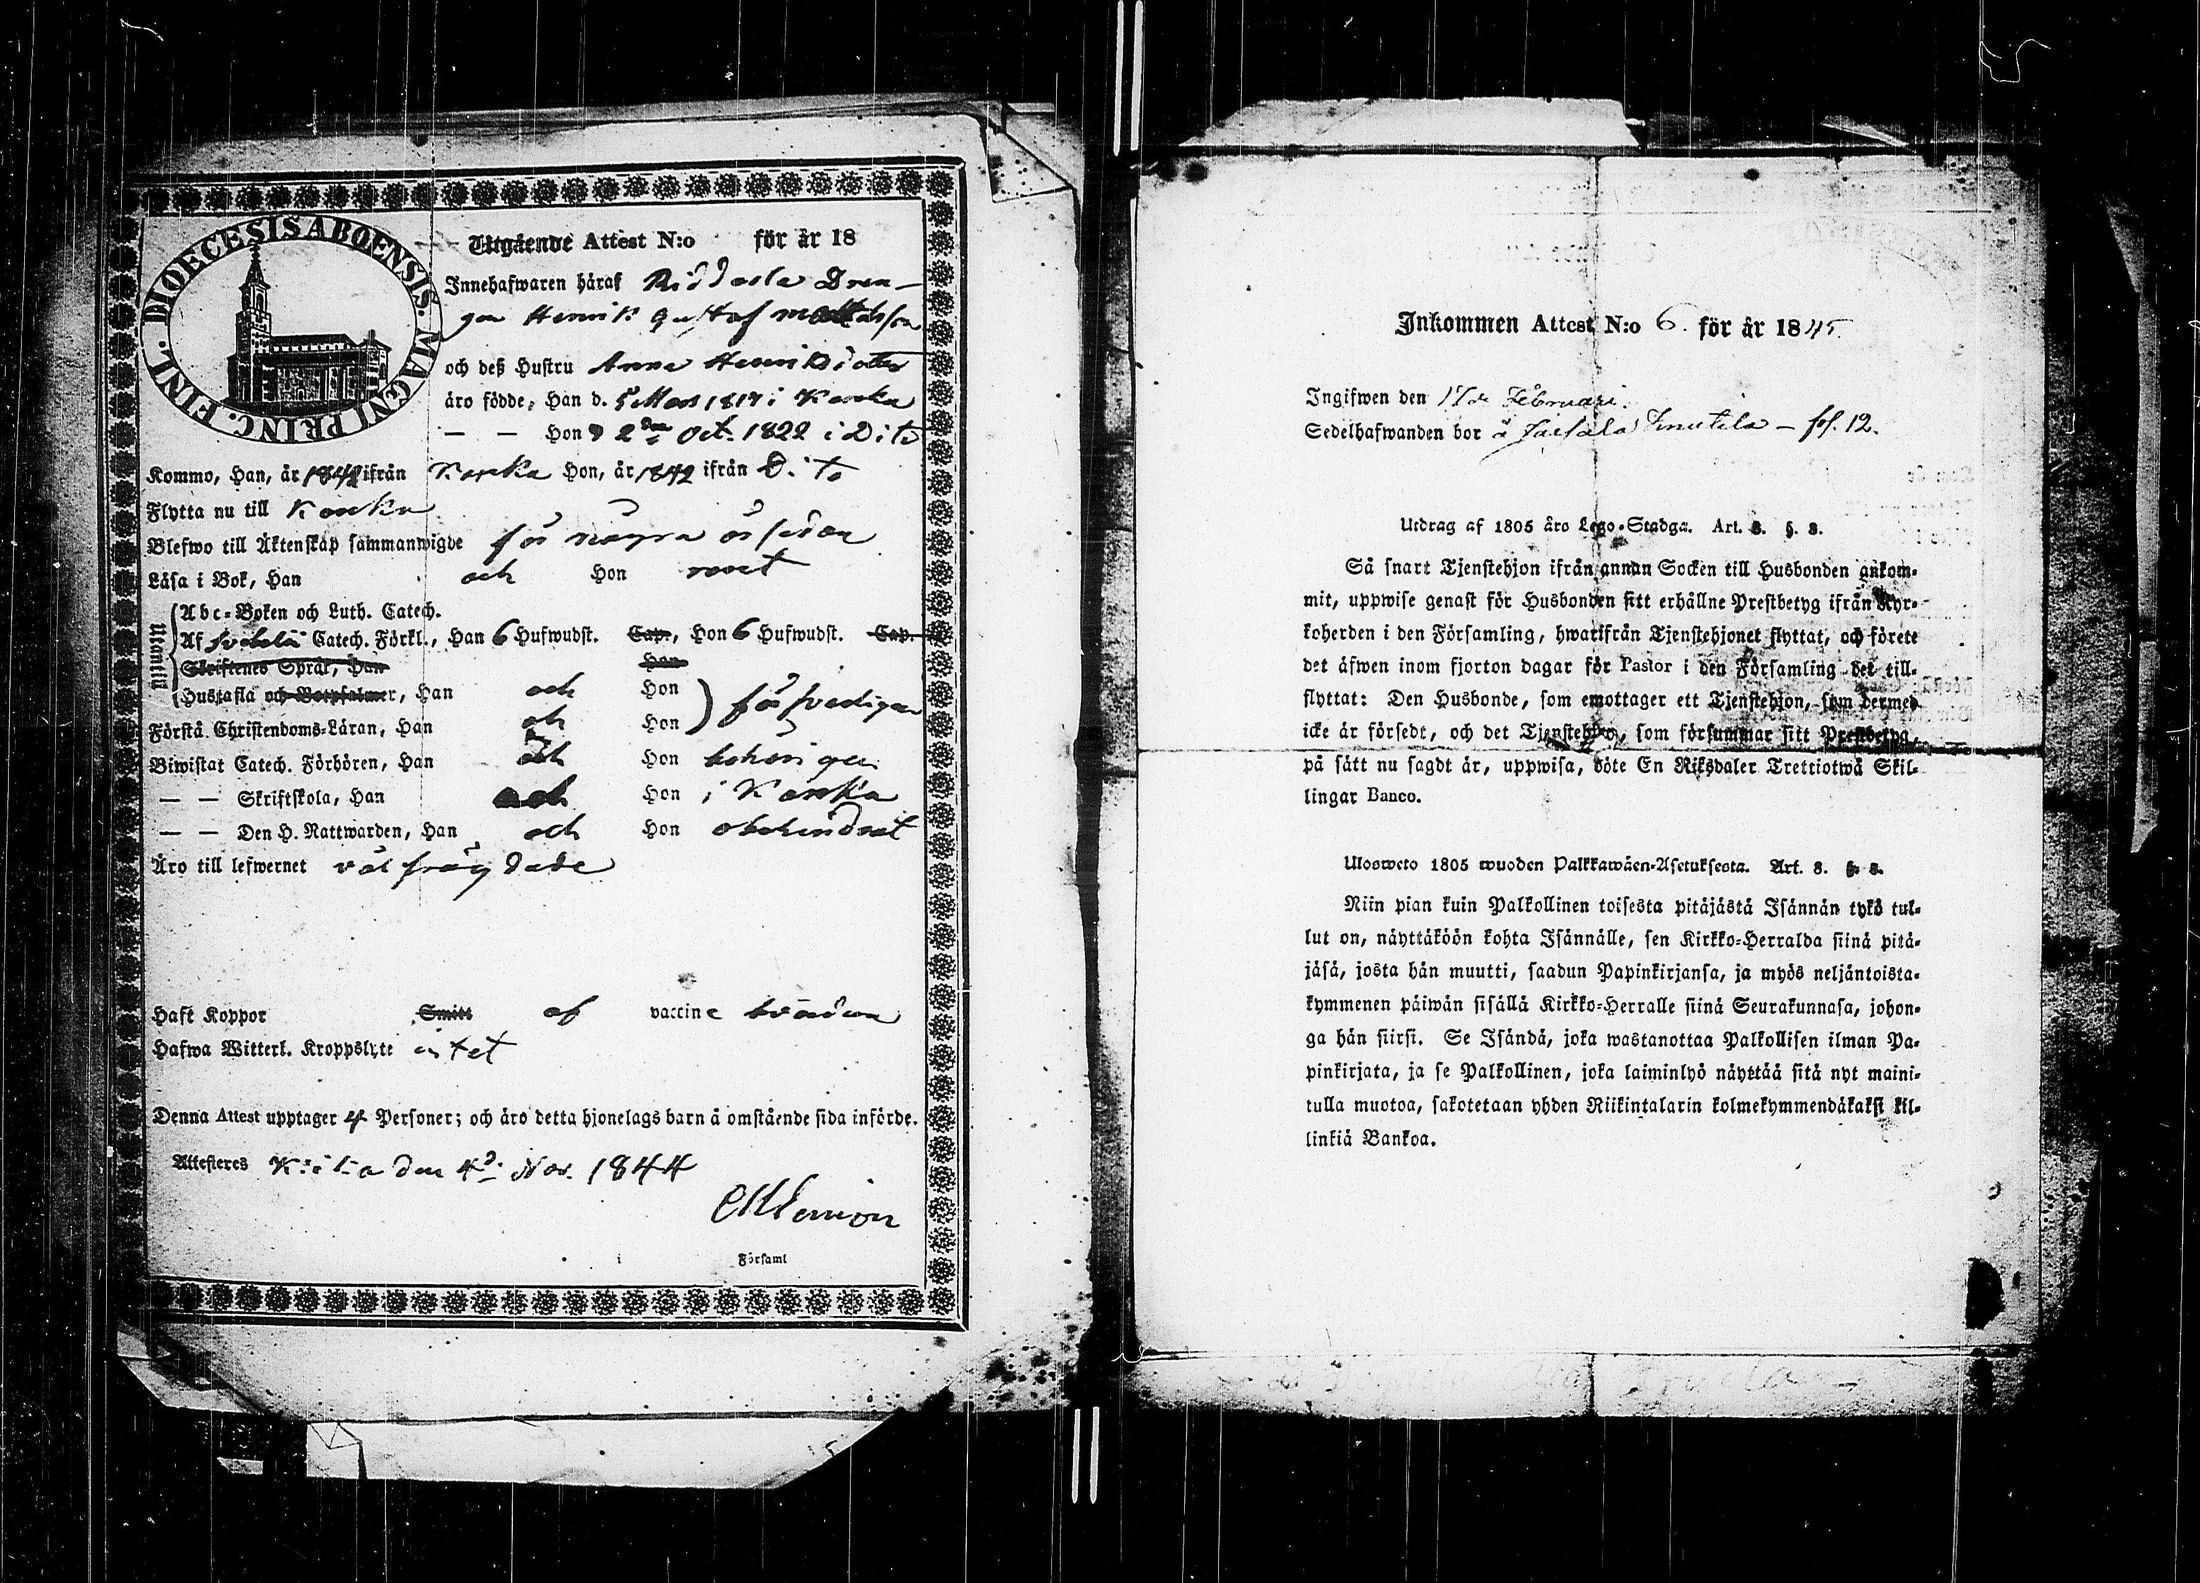 DIOECESIS ABOENSIS. MAGNI PRINC. FINL.
Utgående Attest N:o för år 18
Innehafwaren häraf Dren-
gen Henrik Gustaf Mattsson
och deß Hustru Anna Henriksdotter
äro födde, Han d. Mars i Karku
— — Hon d 2den Oct. 1822 i Dito
Kommo, Han, år 1842 ifrån Karku Hon, år 1842 ifrån Dito
Flytta nu till Karku
Blefwo till Äktenskap sammanwigde för några år sedan
Läsa i Bok, Han och Hon
Utantill
Abc-Boken och Luth. Catech.
Af Svebelii Catech. Förkl., Han 6 Hufwudst. Cap., Hon 6 Hufwudst. Cap.
Skriftenes Språk, Han Hon
Hustafla och Botpsalmer, Han och Hon
Förstå Christendoms-Läran, Han och Hon försvarligen
Biwistat Catech. Förhören, Han och Hon behörigen
— — Skriftskola, Han och Hon i Karku
— — Den H. Nattwarden, Han och Hon obehindrat
Äro till lefwernet väl frägdade
Haft Koppor Smitt af vaccine bräden
Hafwa Witterl. Kroppslyte intet
Denna Attest upptager 4 Personer; och äro detta hjonelags barn å omstående sida införde.
Attesteres den 4d. Nov. 1844
i Församl
Inkommen Attest N:o 6. för år 1845.
Ingifwen den Februari.
Sedelhafwanden bor å Knutila — 12.
Utdrag af 1805 åro Lego-Stadga. Art. 8. §. 8.
Så snart Tjenstehjon ifrån annan Socken till Husbonden ankom-
mit, uppwise genast för Husbonden sitt erhållne Prestbetyg ifrån Kyr-
koherden i den Församling, hwarifrån Tjenstehjonet flyttat, och förete
det äfwen inom fjorton dagar för Pastor i den Församling det till-
flyttat: Den Husbonde, som emottager ett Tjenstehjon, som dermed
icke är försedt, och det Tjenstehjon, som försummar sitt Prestbetyg,
på sätt nu sagdt är, uppwisa, böte En Riksdaler Trettiotwå Skil-
lingar Banco.
Ulosweto 1805 wuoden Palkkawäen-Asetuksesta. Art. 8. §. 8.
Niin pian kuin Palkollinen toisesta pitäjästä Isännän tykö tul-
lut on, näyttäköön kohta Isännälle, sen Kirkko-Herralda siinä pitä-
jäsä, josta hän muutti, saadun Papinkirjansa, ja myös neljäntoista-
kymmenen päiwän sisällä Kirkko-Herralle siinä Seurakunnasa, johon-
ga hän siirsi. Se Isändä, joka wastanottaa Palkollisen ilman Pa-
pinkirjata, ja se Palkollinen, joka laiminlyö näyttää sitä nyt maini-
tulla muotoa, sakotetaan yhden Riikintalarin kolmekymmendäkaksi kil-
linkiä Bankoa.